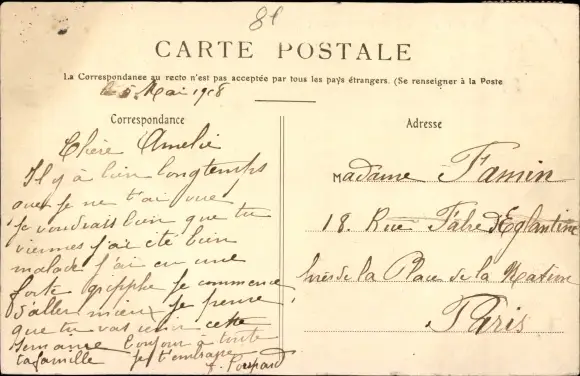 81
CARTE POSTALE
La Correspondance au recto n'est pas acceptée par tous les pays étrangers. (Se renseigner à la Poste
le 5 Mai 1908
Correspondance
Adresse
Chère Amelie
Il y à bien longtemps
que je ne t'ai vue
je voudrais bien que tu
viennes j'ai été bien
malade j'ai eu une
forte grippe je commence
d'aller mieux je pense
que tu vas venir cette
semaine Bonjour à toute
ta famille je t'embrasse
Madame Famin
18. Rue Fabre d'Eglantine
près de la Place de la Nation
Paris